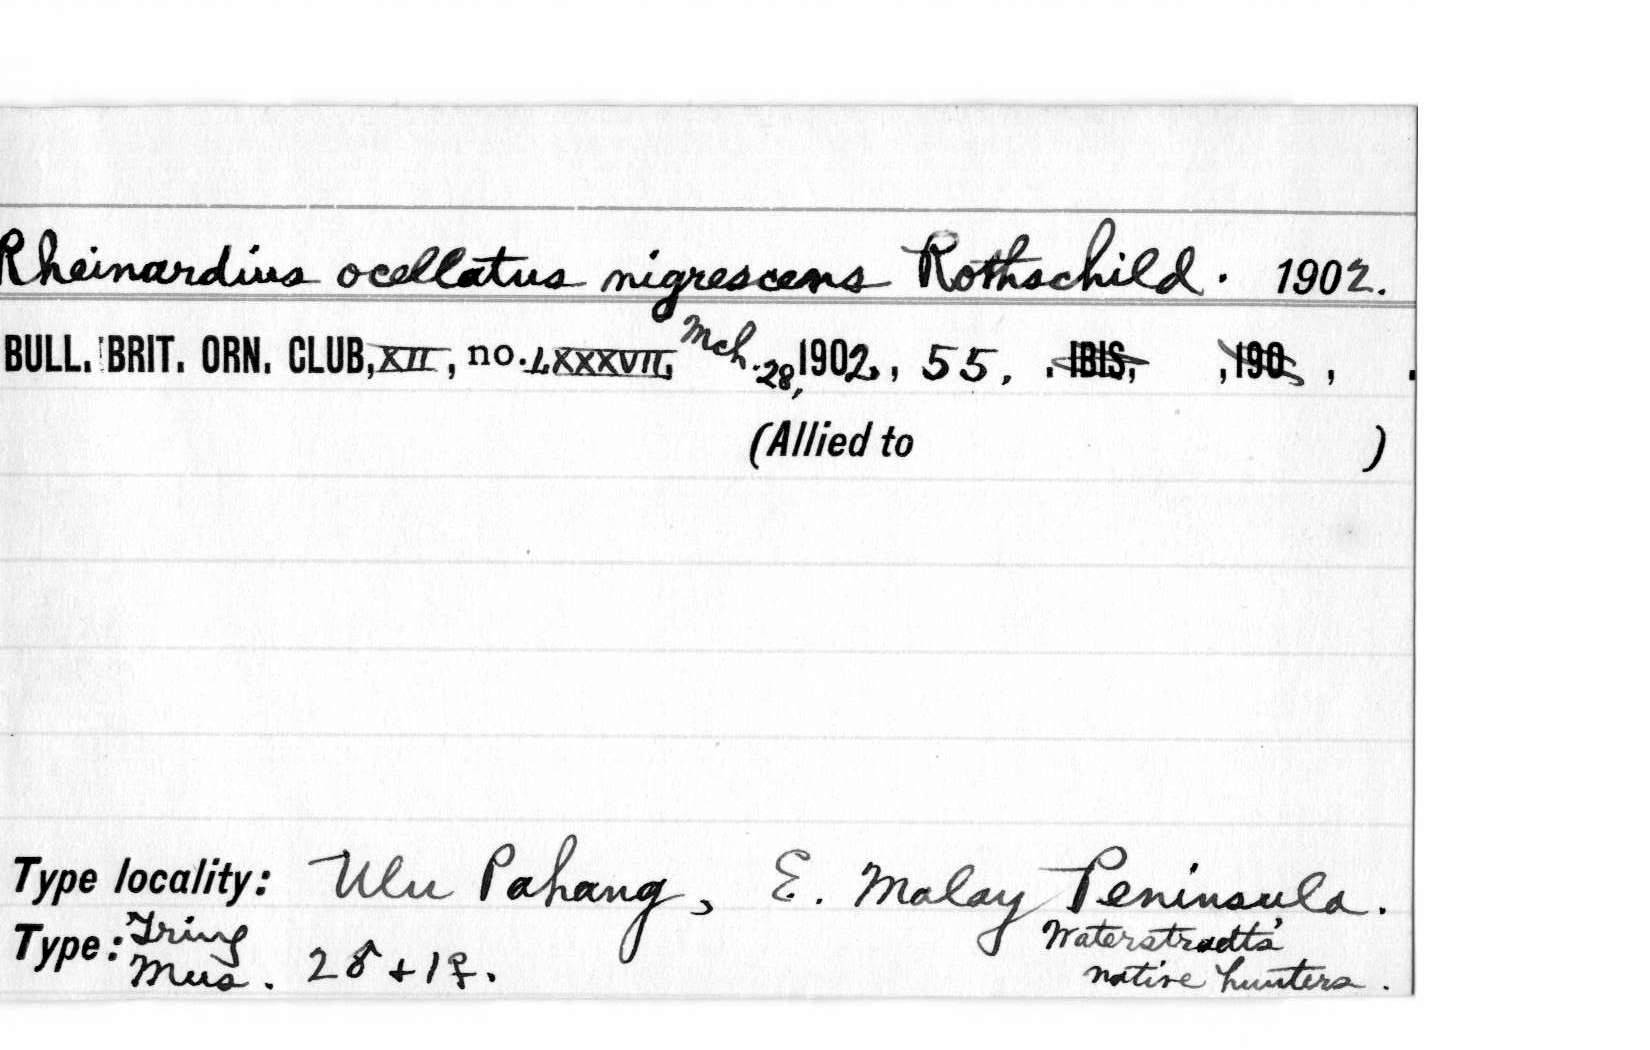 Rheinardius ocellatus nigrescens Rothschild. 1902.
BULL. BRIT. ORN. CLUB, XII, no. LXXXVII, Mch. 28, 1902, 55. . IBIS, ,190 , .
(Allied to )
Type locality: Ulu Pahang, E. Malay Peninsula.
Type: Tring Mus. 2♂ + 1♀. Waterstradts' native hunters.